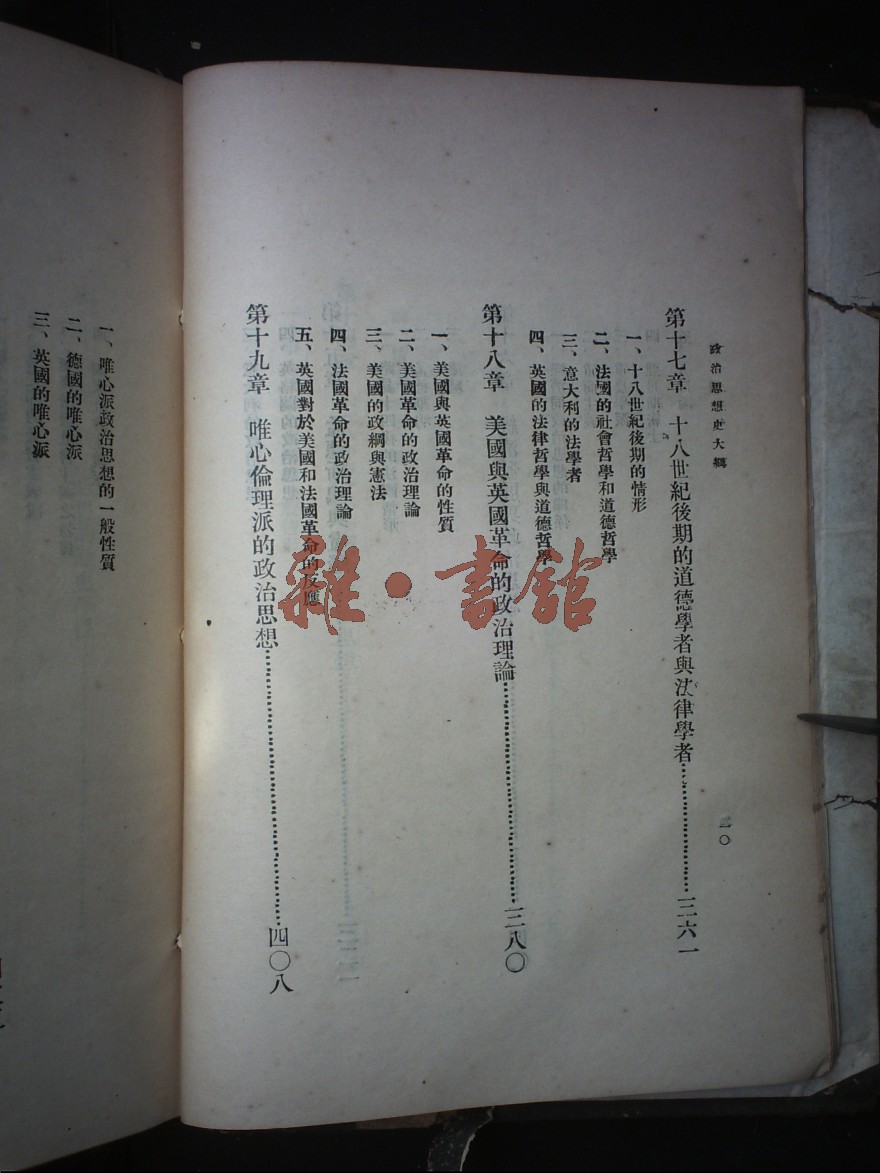 政治思想史大綱
一〇
第十七章 十八世紀後期的道德學者與法律學者……三六一
一、十八世紀後期的情形
二、法國的社會哲學和道德哲學
三、意大利的法學者
四、英國的法律哲學與道德哲學
第十八章 美國與英國革命的政治理論……三八〇
一、美國與英國革命的性質
二、美國革命的政治理論
三、美國的政綱與憲法
四、法國革命的政治理論
五、英國對於美國和法國革命的反應
第十九章 唯心倫理派的政治思想……四〇八
一、唯心派政治思想的一般性質
二、德國的唯心派
三、英國的唯心派
雜·書館